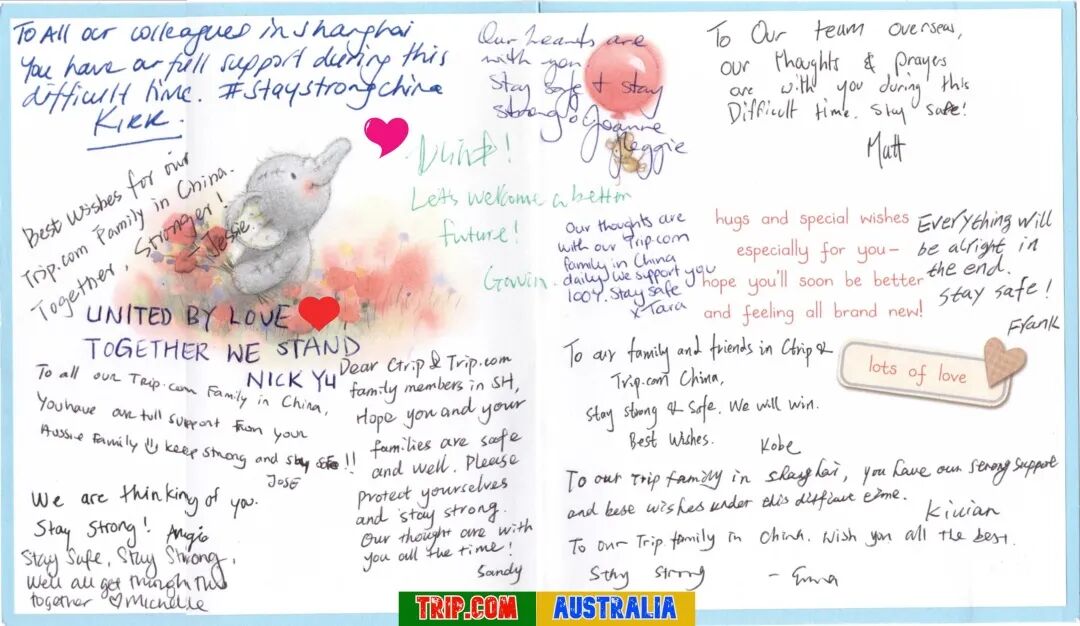 To All our colleagues in Shanghai
You have our full support during this
difficult time. #Staystrongchina
KIRK.
Our hearts are
with you.
Stay safe & stay
strong
Joanne
Reggie
To Our team overseas,
our thoughts & prayers
are with you during this
Difficult time. Stay safe!
Matt
Best wishes for our
Trip.com Family in China.
Together, Stronger!
- Jessie.
Let's welcome a better
future!
Gavin.
Our thoughts are
with our Trip.com
family in China
daily. We support you
100%. Stay safe
x Tara
hugs and special wishes
especially for you–
hope you'll soon be better
and feeling all brand new!
Everything will
be alright in
the end.
Stay safe!
Frank
UNITED BY LOVE
TOGETHER WE STAND
NICK YU
To all our Trip.com Family in China,
You have our full support from your
Aussie Family keep strong and stay safe!!
JOSE
Dear Ctrip & Trip.com
family members in SH,
Hope you and your
families are safe
and well. Please
protect yourselves
and stay strong.
Our thought are with
you all the time!
Sandy
To our family and friends in Ctrip &
Trip.com China,
Stay strong & Safe. We will win.
Best Wishes.
Kobe
lots of love
We are thinking of you.
Stay Strong! Angie
Stay Safe, Stay Strong,
We'll all get through this
together ♡ Michelle
To our Trip family in Shanghai, you have our strong support
and best wishes under this difficult time.
Kivian
To our Trip.family in China. Wish you all the best.
Stay strong
- Emma
TRIP.COM AUSTRALIA